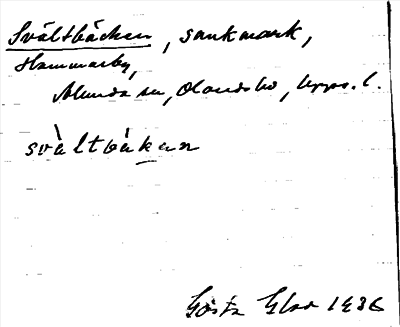 Svältbäcken, sankmark,
Hammarby,
Almunda sn, Olands hd, Upps. l.
svàltbákan
Gösta Elao 1936